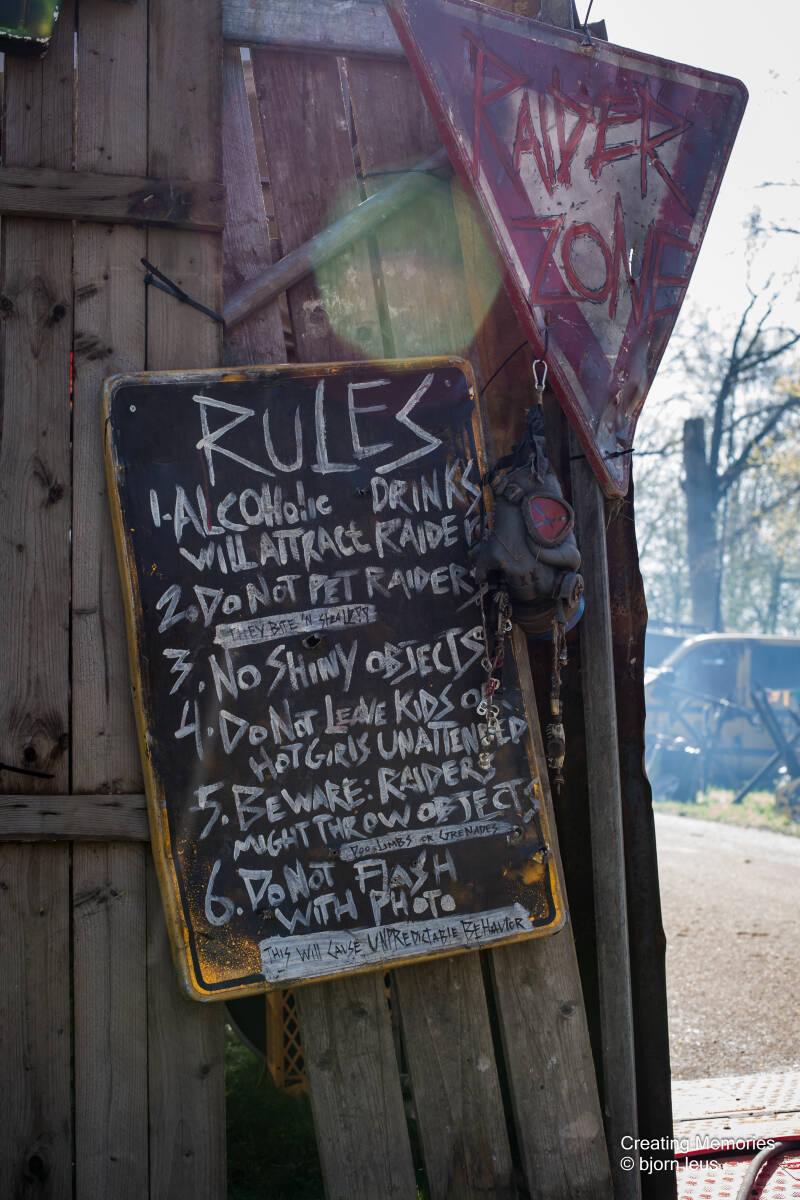 RAIDER
ZONE
RULES
1-ALCOHOLIC DRINKS
WILL ATTRACT RAIDER
2. DO NOT PET RAIDERS
THEY BITE 'N STEAL!!
3. NO SHINY OBJECTS
4. DO NOT LEAVE KIDS OR
HOT GIRLS UNATTENDED
5. BEWARE: RAIDERS
MIGHT THROW OBJECTS
LIMBS OR GRENADES
6. DO NOT FLASH
WITH PHOTO
THIS WILL CAUSE UNPREDICTABLE BEHAVIOR
Creating Memories
© bjorn leus